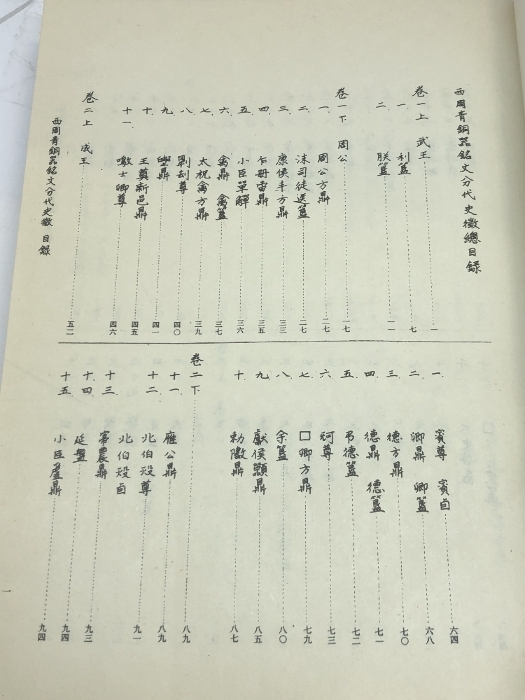 西周青銅器銘文分代史徵總目錄
卷一上 武王 一
一 利簋 七
二 朕簋 一一
卷一下 周公 一七
一 周公方鼎 二七
二 沬司徒送簋 二七
三 康侯丰方鼎 三三
四 乍冊䰧鼎 三五
五 小臣單觶 三六
六 禽鼎 禽簋 三七
七 太祝禽方鼎 三九
八 劉尊 四〇
九 鼎 四一
十 王奠新邑鼎 四五
十一 士卿尊 四六
卷二上 成王 五二
西周青銅器銘文分代史徵 目錄
一 賓尊 賓卣 六四
二 卿鼎 卿簋 六八
三 德方鼎 七〇
四 德鼎 德簋 七一
五 弔德簋 七二
六 尊 七三
七 □卿方鼎 七九
八 余簋 八〇
九 獻侯顯鼎 八五
十 勅鼎 八七
卷二下 八九
十一 應公鼎 八九
十二 北伯㱿尊 九一
北伯㱿卣
十三 農鼎 九三
十四 延盤 九四
十五 小臣鼎 九四